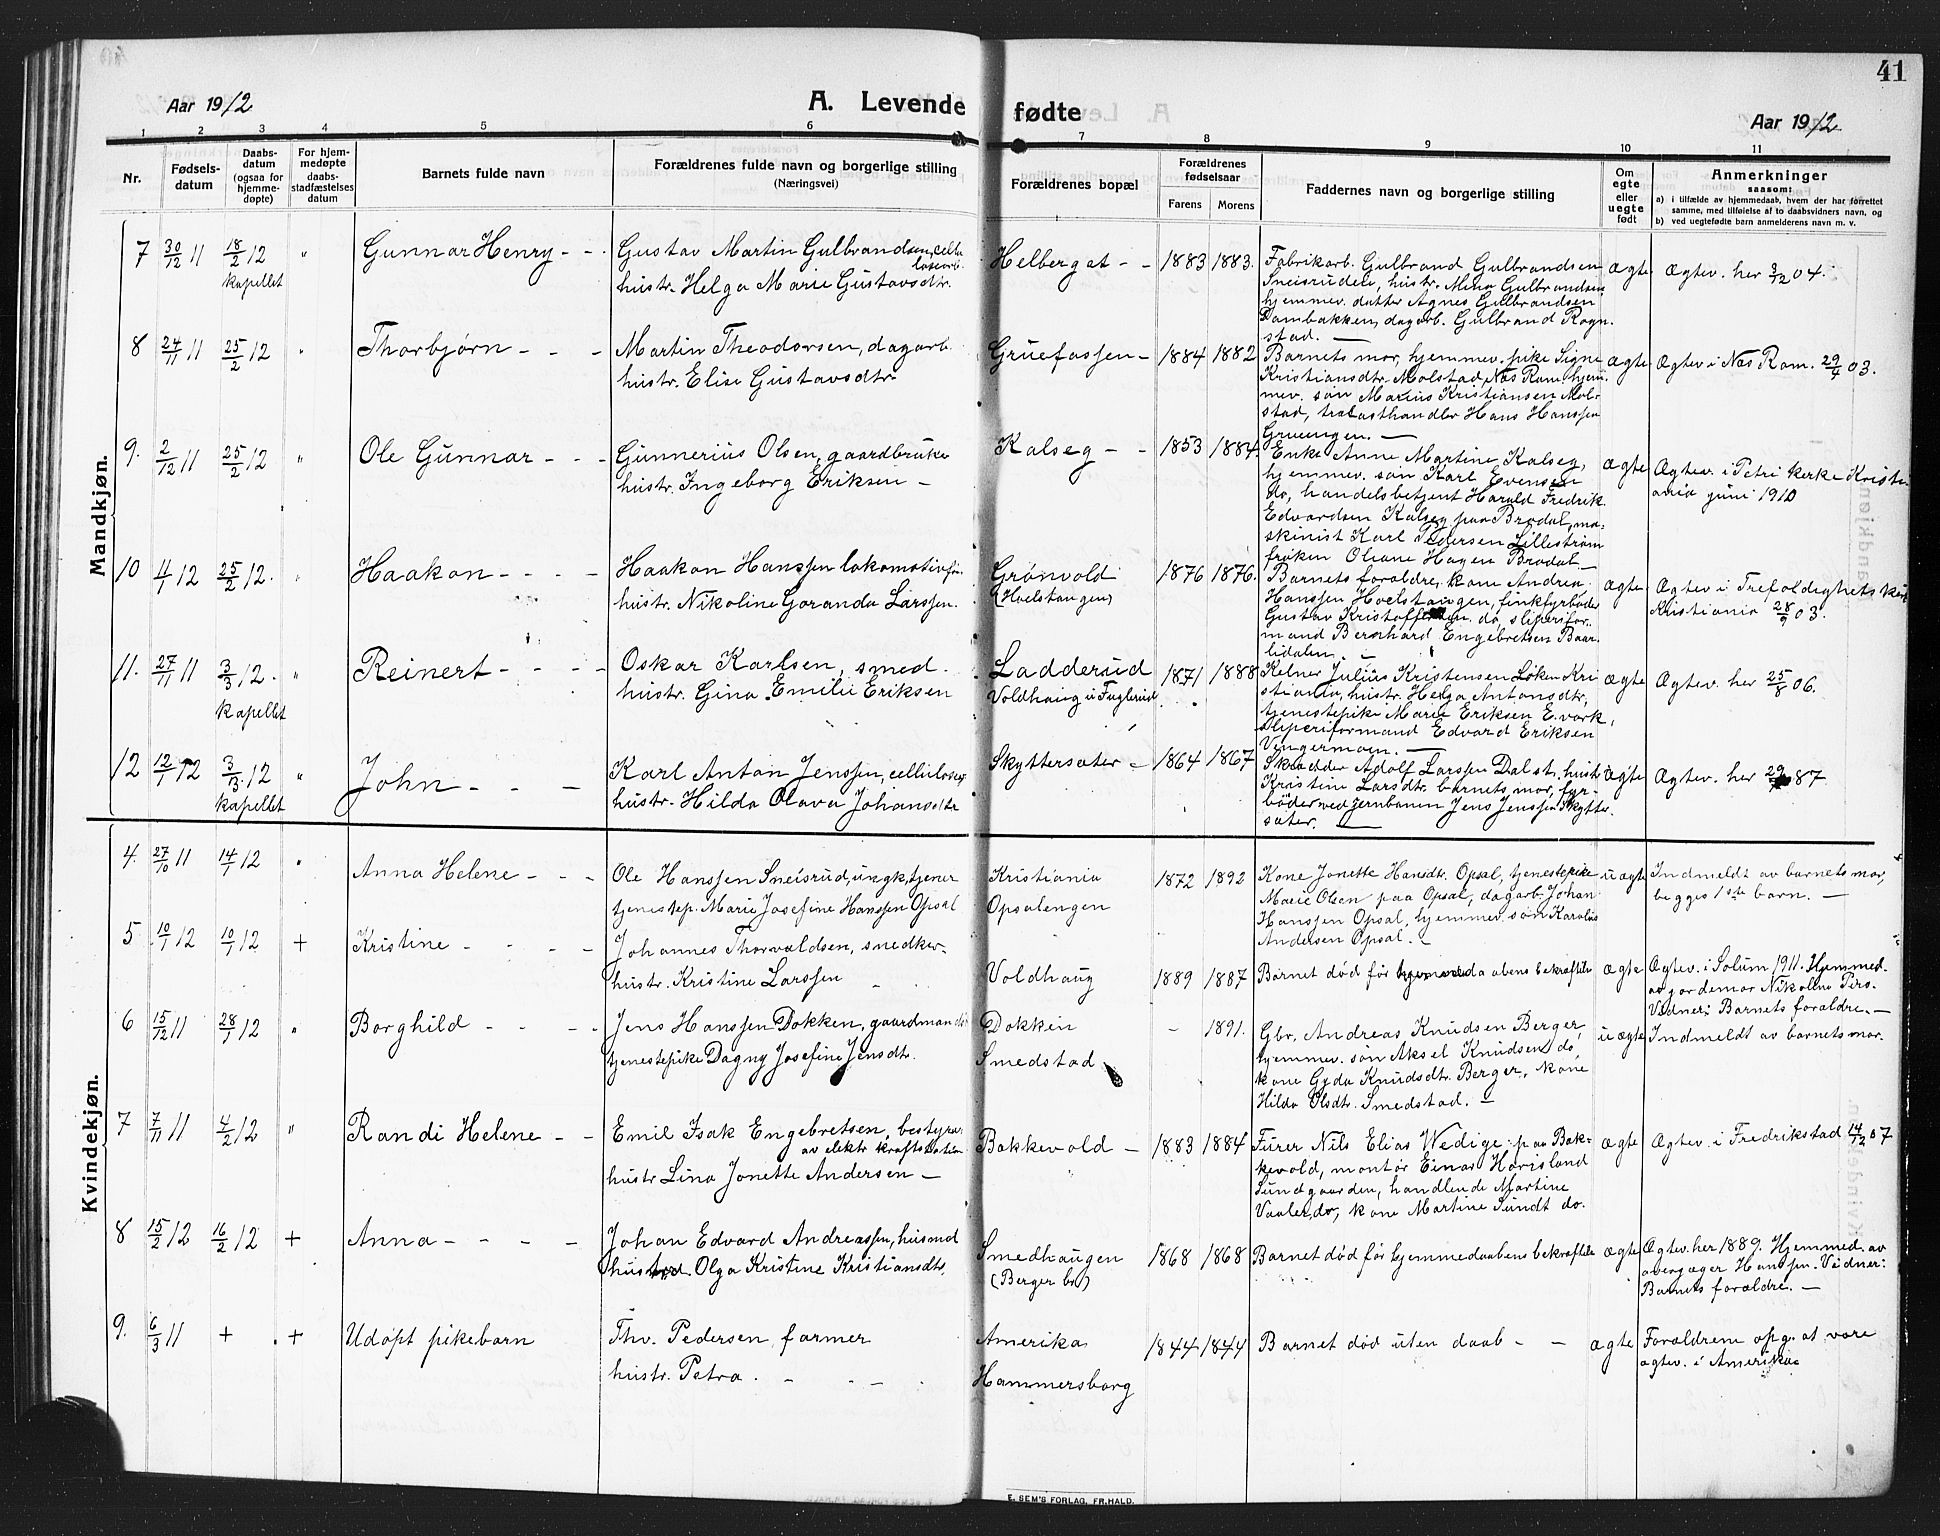 41
Aar 1912
A. Levende fødte
Aar 1912
1 2 3 4 5 6 7 8 9 10 11
Nr.
Fødsels-
datum
Daabs-
datum
(ogsaa for
hjemme-
døpte)
For hjem-
medøpte
daabs-
stadfæstelses
datum
Barnets fulde navn
Forældrenes fulde navn og borgerlige stilling
(Næringsvei)
Forældrenes bopæl
Forældrenes
fødselsaar
Farens Morens
Faddernes navn og borgerlige stilling
Om
egte
eller
uegte
født
Anmerkninger
saasom:
a) i tilfælde av hjemmedaab, hvem der har forrettet
samme, med tilføielse af to daabsvidners navn, og
b) ved uegtefødte barn anmelderens navn m. v.
Mandkjøn.
7 30/12 11 18/2 12 " Gunnar Henry
kapellet
Gustav Martin Gulbrandsen,
hustr. Helga Marie Gustavsdtr.
Helberget 1883 1883.
Fabrikarb. Gulbrand Gulbrandsen
Sneisrudeie, hustr. Mina Gulbrandsen,
hjemmev. datter Agnes Gulbrandsen
Dambakken, dagarb. Gulbrand Rogn-
stad.
ægte Ægtev. her 3/12 04.
8 24/11 11 25/2 12 " Thorbjørn
Martin Theodorsen, dagarb.
hustr. Elise Gustavsdtr.
Gruefossen 1884 1882
Barnets mor, hjemmev. pike Signe
Kristiansdtr. Molstad, Næs Rom. hjem-
mev. søn Marius Kristiansen Mol-
stad, trælasthandler Hans Hanssen
Grueengen.
ægte Ægtev i Næs Rom. 29/4 03.
9. 2/12 11 25/2 12 " Ole Gunnar
Gunnerius Olsen, gaardbruker
hustr. Ingeborg Eriksen
Kalseg 1853 1884
Enke Anne Martine Kalseg,
hjemmev. søn Karl Evensen
do, handelsbetjent Harald Fredrik
Edvardsen Kalseg paa Brodal, ma-
skinist Karl Pedersen Lillestrøm
frøken Oliane Hagen Brodal.
ægte Ægtev. i Petri kerke Kristi-
ania juni 1910
10 4/1 12 25/2 12. " Haakon
Haakon Hanssen lokomotivfør.
hustr. Nikoline Goranda Larssen.
Grønvold
(Hoelstangen)
1876 1876.
Barnets forældre, kone Andrea
Hanssen Hoelstangen, finkfyrbøder
Gustav Kristoffersen do, sliperifor-
mand Bernhard Engebretsen Baar-
lidalen.
ægte Ægtev i Trefoldighets kirke
Kristiania 28/9 03.
11. 27/11 11 3/3 12. " Reinert
kapellet
Oskar Karlsen, smed.
hustr. Gina Emilie Eriksen
Ladderud
Voldhaug i Fuglerud
1871 1888
Kelner Julius Kristensen Løken Kri
stiania, hustr. Helga Antonsdtr,
tjenestepike Marie Eriksen E. værk,
sliperiformand Edvard Eriksen
Vingermoen.
ægte Ægtev. her 25/8 06.
12 12/1 12 3/3 12 " John
kapellet
Karl Anton Jenssen,
hustr. Hilda Olava Johansdtr
Skyttersæter 1864 1867
Skrædder Adolf Larssen Dal st, hustr
Kristine Larsdtr. barnets mor, fyr-
bøder ved jernbanen Jens Jenssen Skytter
sæter.
ægte Ægtev. her 29/ 87.
Kvindekjøn.
4. 27/10 11 14/1 12 " Anna Helene
Ole Hanssen Sneisrud, ungk, tjener
tjenestep. Marie Josefine Hanssen Opsal
Kristiania
Opsalengen
1872 1892
Kone Jonette Hansdtr. Opsal, tjenestepike
Marie Olsen paa Opsal, dagarb. Johan
Hanssen Opsal, hjemmev. søn Karolius
Andersen Opsal.
uægte Indmeldt av barnets mor,
begges 1ste barn.
5 10/1 12 10/1 12 + Kristine
Johannes Thorvaldsen, snedker
hustr. Kristine Larssen
Voldhaug 1889 1887
Barnet død før hjemmedaabens bekræftelse
ægte Ægtev. i Solum 1911. Hjemmed.
av jordemor Nikoline Pers.
Vidner: Barnets forældre.
6 15/12 11 28/1 12 " Borghild
Jens Hanssen Dokken, gaardmand
tjenestepike Dagny Josefine Jensdtr.
Dokken
Smedstad
- 1891.
Gbr. Andreas Knudsen Berger,
hjemmev. søn Aksel Knudsen do,
kone Gyda Knudsdtr. Berger, kone
Hilda Olsdtr. Smedstad.
uægte Indmeldt av barnets mor.
7 7/11 11 4/2 12 " Randi Helene
Emil Isak Engebretsen, bestyrer
av elektr kraftstation
hustr Lina Jonette Andersen
Bakkevold 1883 1884
Furer Nils Elias Wedige paa Bak-
kevold, montør Einar Horisland
Sundgaarden, handlende Martine
Vaaler, do, kone Martine Sundt do.
ægte Ægtev. i Fredrikstad 14/12 07
8 15/2 12 16/2 12 + Anna
Johan Edvard Andreassen, husmd
hustr. Olga Kristine Kristiansdtr,
Smedhaugen
(Berger br)
1868 1868
Barnet død før hjemmedaabens bekræftelse
ægte Ægtev. her 1889. Hjemmed. av
Hanssen. Vidner:
Barnets forældre.
9. 6/3 11 + + Udøpt pikebarn
Thv. Pedersen farmer
hustr. Petra
Amerika
Hammersborg
1844 1844
Barnet død uten daab
ægte Forældrene opg. at være
ægtev. i Amerika
E. SEM'S FORLAG, FR.HALD.